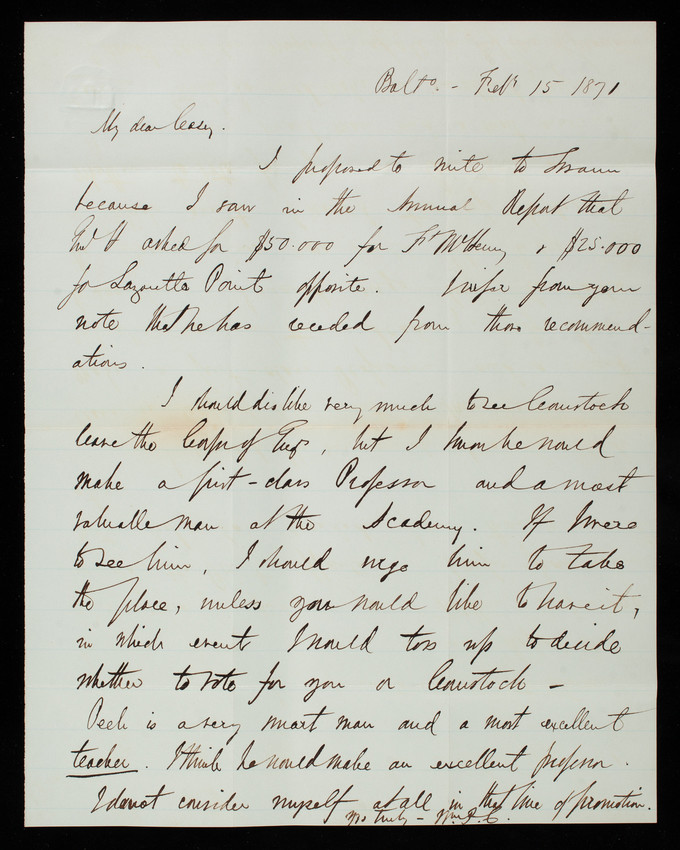 Balto. - Feb 15 1871
My dear Casey.
I proposed to write to Swann
because I saw in the Annual Report that
Genl H asked for $50.000 for Ft McHenry & $25.000
for Lazaretto Point opposite. I infer from your
note that he has receded from those recommend-
ations.
I should dislike very much to see Comstock
leave the Corps of Engrs, but I know he would
make a first-class Professor and a most
valuable man at the Academy. If I were
to see him, I should urge him to take
the place, unless you would like to have it,
in which event I would toss up to decide
whether to vote for you or Comstock -
Peck is a very smart man and a most excellent
teacher. I think he would make an excellent professor.
I do not consider myself at all in that line of promotion.
Yrs truly - Wm P. C.